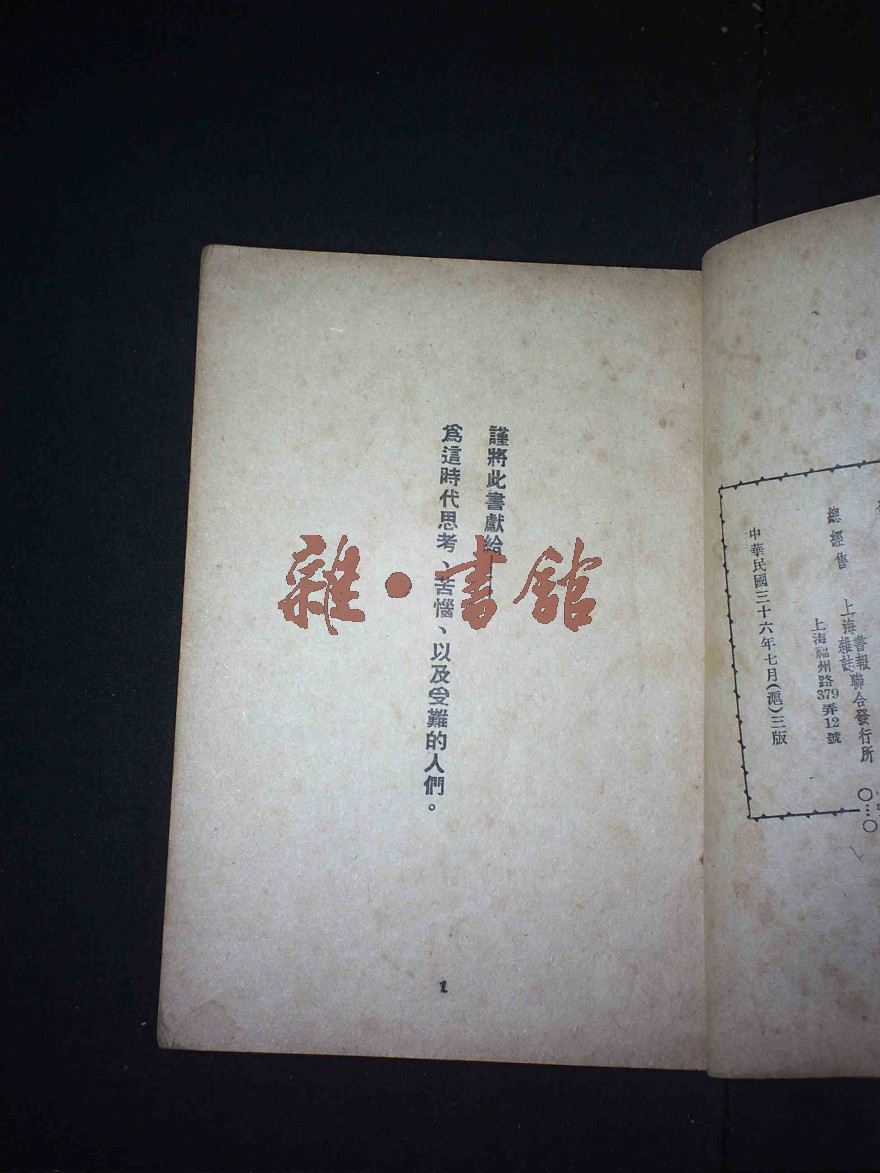 總經售
上海雜誌
書報聯合發行所
上海福州路379弄12號
中華民國三十六年七月(滬)三版
謹將此書獻給
為這時代思考、苦惱、以及受難的人們。
1
雜·書館